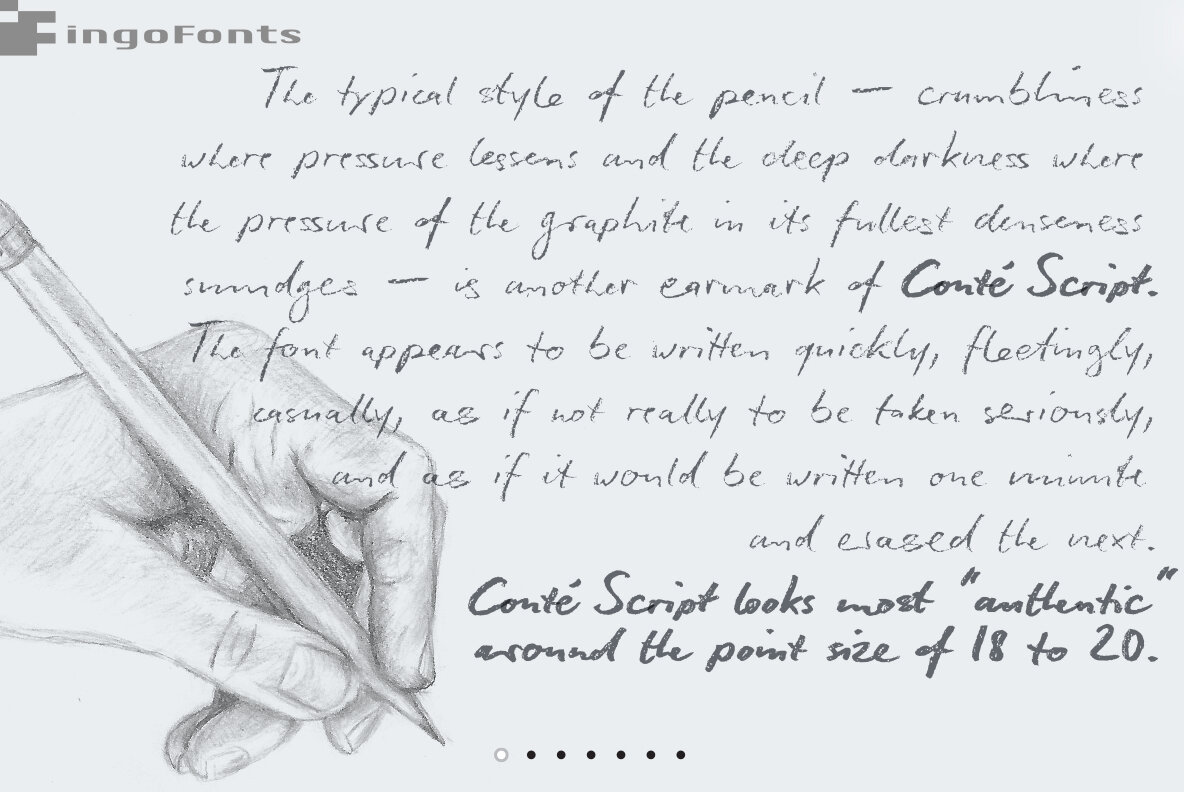 ingoFonts
The typical style of the pencil — crumbliness
where pressure lessens and the deep darkness where
the pressure of the graphite in its fullest denseness
smudges — is another earmark of Conté Script.
The font appears to be written quickly, fleetingly,
casually, as if not really to be taken seriously,
and as if it would be written one minute
and erased the next.
Conté Script looks most “authentic”
around the point size of 18 to 20.